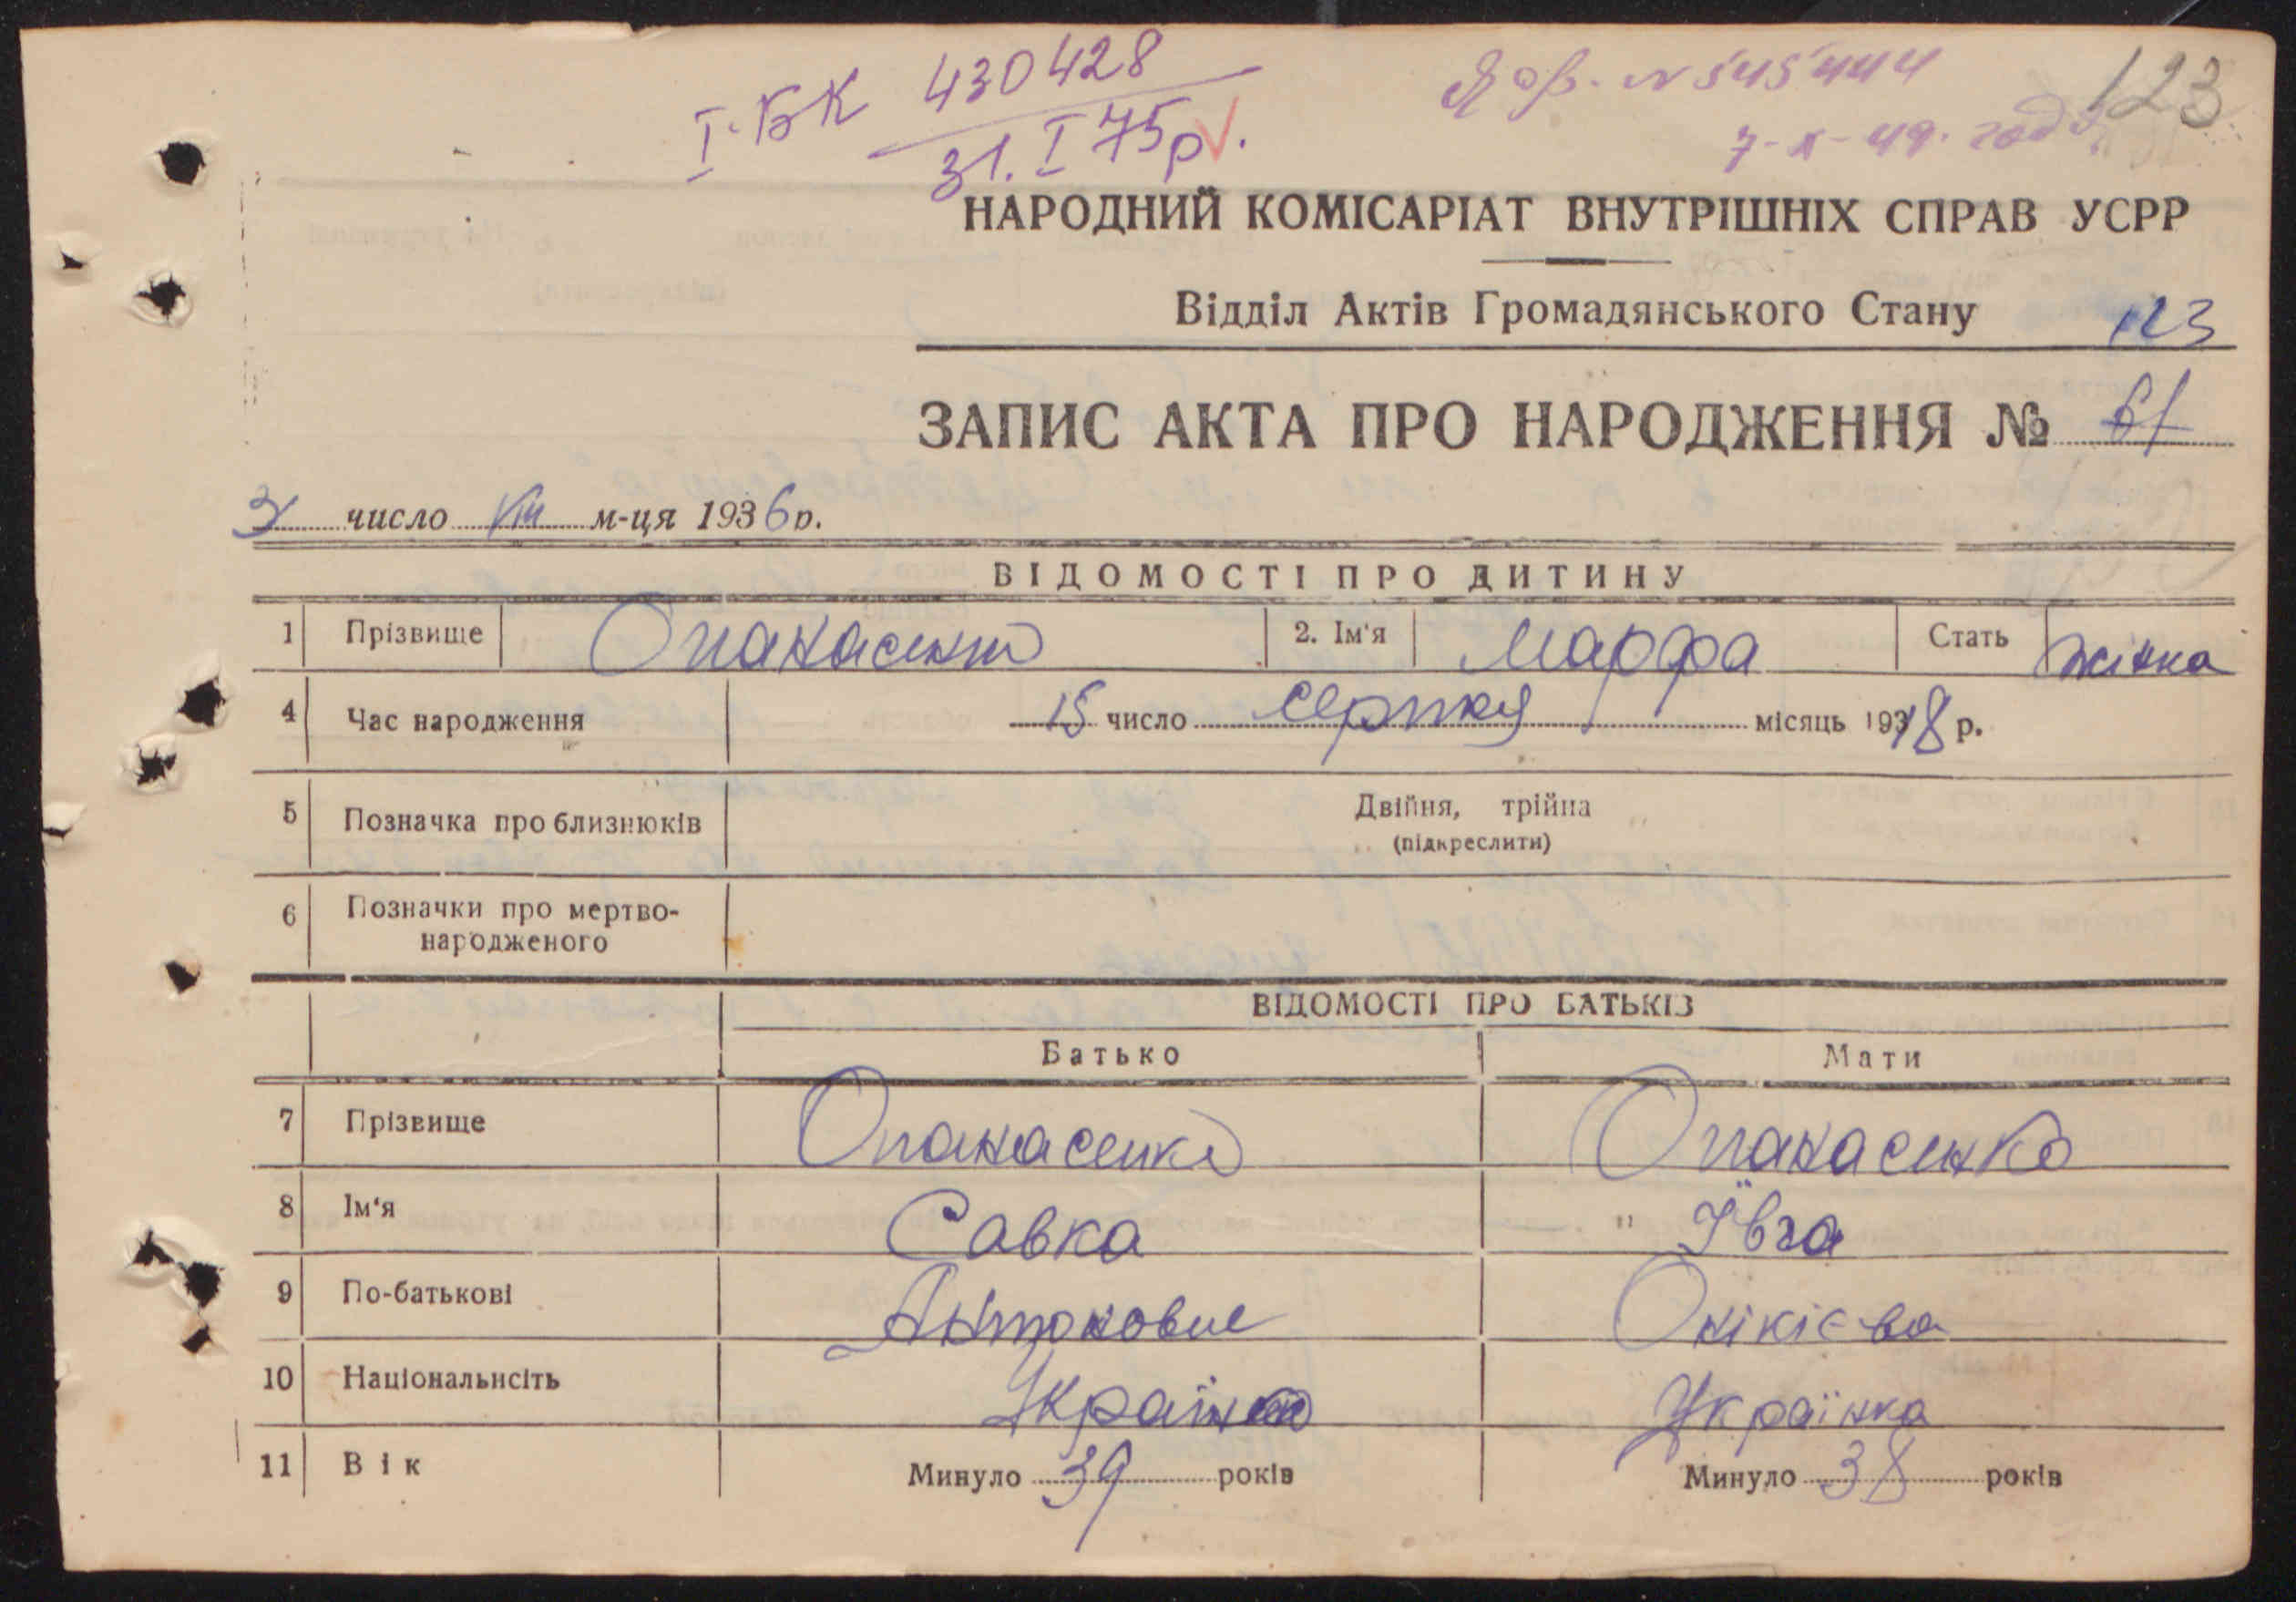 І-БК 430428
31. І 75р.
N 545444
7-X-49. года
123
НАРОДНИЙ КОМІСАРІАТ ВНУТРІШНІХ СПРАВ УСРР
Відділ Актів Громадянського Стану 123
ЗАПИС АКТА ПРО НАРОДЖЕННЯ № 61
число VIII м-ця 1936 р.
ВІДОМОСТІ ПРО ДИТИНУ
1 Прізвище Опанасенко 2. Ім'я Марфа Стать жінка
4 Час народження 15 число серпня місяць 1918 р.
5 Позначка про близнюків Двійня, трійна
(підкреслити)
6 Позначки про мертво-
народженого
ВІДОМОСТІ ПРО БАТЬКІВ
Батько Мати
7 Прізвище Опанасенко Опанасенко
8 Ім'я Савка Ївга
9 По-батькові Антонович Оникієва
10 Національнсіть Українец Українка
11 Вік Минуло 39 років Минуло 38 років